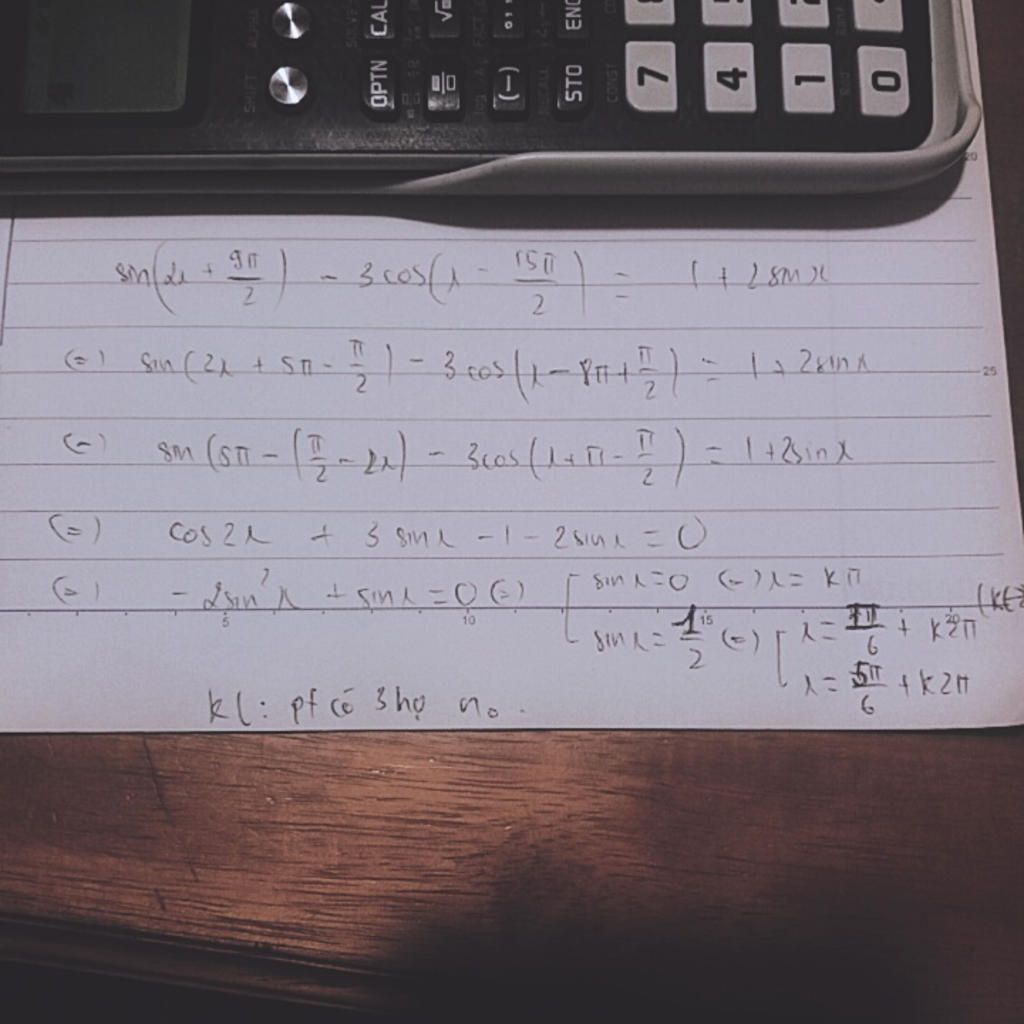 SHIFT ALPHA
OPTN CAL
(-)
STO ENG
CONST
7 4 1 0
20
sin(2x + 9π/2) - 3cos(x - 15π/2) = 1 + 2sinx
(=) sin(2x + 5π - π/2) - 3cos(x - 8π + π/2) = 1 + 2sinx
25
(=) sin(5π - (π/2 - 2x) - 3cos(x + π - π/2) = 1 + 2sinx
(=) cos2x + 3sinx - 1 - 2sinx = 0
(=) - 2sin²x + sinx = 0 (=) [ sinx = 0 (=) x = kπ
sinx = 1/2 (=) [ x = π/6 + k2π
5 10 15 20
x = 5π/6 + k2π
kl: pt có 3 họ no.